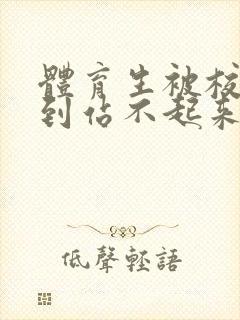 體育生被
到佔不起來
低聲輕語